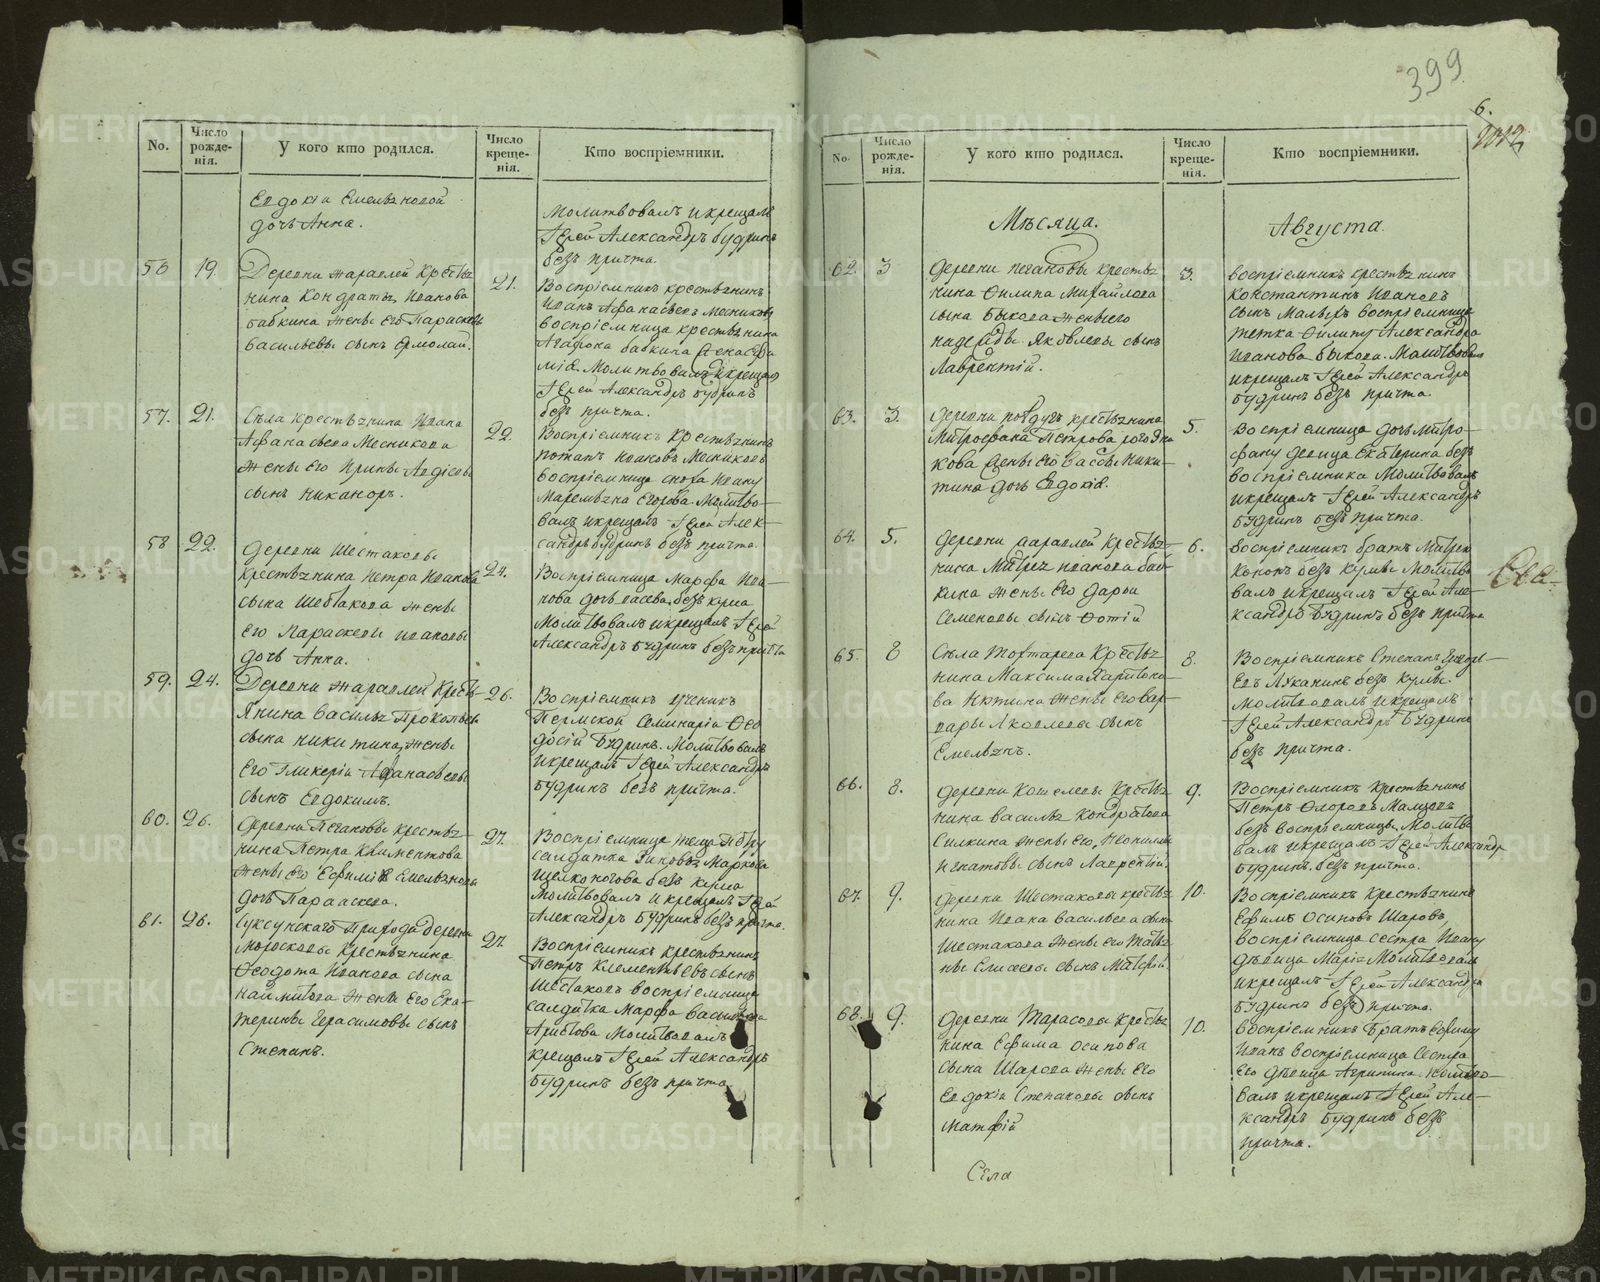 399
6.
No.
Число рожде-нія.
У кого кто родился.
Число креще-нія.
Кто воспріемники.
Евдокіи Емельяновой
дочь Анна.
молитвовалъ и крещалъ
Іерей Александръ Будринъ
безъ причта.
56
19.
Деревни Журавлей Крестья
нина Кондратья Иванова
бабкина жены его Параскевы
Васильевы сынъ Ермолай.
21.
Воспріемникъ крестьянинъ
Иванъ Афанасьевъ Месниковъ
воспріемница крестьянина
Агафона бабкина
Молитвовалъ и крещалъ
Іерей Александръ Будринъ
безъ причта.
57.
21.
Села крестьянина Ивана
Афанасьева Месникова
жены его Ирины Авдіевы
сынъ Никаноръ.
22.
Воспріемникъ Крестьянинъ
Потапъ Ивановъ Месниковъ
воспріемница сноха Ивану
Маремьяна Егорова Молитво-
валъ и крещалъ Іерей Алек-
сандръ Будринъ безъ причта.
58
22.
Деревни Шестаковы
крестьянина Петра Иванова
сына Шестакова жены
его Параскевы Ивановы
дочь Анна.
24.
Воспріемница Марфа Ива-
нова дочь безъ кума
Молитвовалъ и крещалъ Іерей
Александръ Будринъ безъ причта
59.
24.
Деревни Журавлей Кресть-
янина Василья Прокопьева
сына Никитина, жены
его Гликеріи Афанасьевы
сынъ Евдокимъ.
26.
Воспріемникъ ученикъ
Пермской Семинаріи Фео
досій Будринъ. Молитвовалъ
и крещалъ Іерей Александръ
Будринъ безъ причта.
60.
26.
Деревни Пегановы крестья-
нина Петра Климентова
жены его Ефиміи Емельяновы
дочь Параскева.
27.
Воспріемница теща Петру
солдатка Маркова
Щелконогова безъ кума
Молитвовалъ и крещалъ Іерей
Александръ Будринъ безъ причта.
61.
26.
Суксунскаго Прихода деревни
Моросковы крестьянина
Феодота Иванова сына
жены его Ека-
терины Герасимовы сынъ
Степанъ.
27.
Воспріемникъ крестьянинъ
Петръ Клементьевъ сынъ
Шестаковъ воспріемница
солдатка Марфа Васильева
Молитвовалъ и
крещалъ Іерей Александръ
Будринъ безъ причта
No.
Число рожде-нія.
У кого кто родился.
Число креще-нія.
Кто воспріемники.
Мѣсяца.
Августа.
62.
3
Деревни Пегановы крестья
нина Филипа Михайлова
сына Быкова жены его
Надежды Яковлевы сынъ
Лаврентій.
3.
Воспріемникъ крестьянинъ
Константинъ Ивановъ
сынъ воспріемница
тетка Филипу Александра
Иванова Быкова. Молитвовалъ
и крещалъ Іерей Александръ
Будринъ безъ причта.
63.
3.
Деревни крестьянина
Митрофана Петрова
кова жены его Вассы Ники-
тина дочь Евдокія.
5.
Воспріемница дочь Митро-
фану девица Екатерина безъ
воспріемника Молитвовалъ
и крещалъ Іерей Александръ
Будринъ безъ причта.
64.
5.
Деревни Журавлей Крестья-
нина Иванова баб-
кина жены его Дарьи
Семеновы сынъ Фотій
6.
Воспріемникъ братъ
Кононъ безъ кумы Молитво
валъ и крещалъ Іерей Але-
ксандръ Будринъ безъ причта
65.
8
Села Товтарева Крестья
нина Максима Харитоно-
ва Нютина жены его Вар
вары Яковлевы сынъ
Емельянъ.
8.
Воспріемникъ Степанъ
безъ кумы.
Молитвовалъ и крещалъ
Іерей Александръ Будринъ
безъ причта.
66.
8.
Деревни Кошелевы Крестья
нина Василья Кондратова
Силкина жены его, Неонилы
Игнатовы сынъ Лаврентій.
9.
Воспріемникъ Крестьянинъ
Петръ Федоровъ Малцовъ
безъ воспріемницы. Молитво
валъ и крещалъ Іерей Александръ
Будринъ. безъ причта.
67.
9.
Деревни Шестаковы крестья
нина Ивана Васильева сына
Шестакова жены его Татья
ны Елисеевы сынъ Матфей
10.
Воспріемникъ Крестьянинъ
Ефимъ Осиповъ Шаровъ,
воспріемница сестра Ивану
дѣвица Марія Молитвовалъ
и крещалъ Іерей Александръ
Будринъ безъ причта.
68.
9.
Деревни Тарасовы Крестья
нина Ефима Осипова
сына Шарова жены его
Евдокіи Степановы сынъ
Матфій
10.
Воспріемникъ Братъ Ефиму
Иванъ воспріемница Сестра
его дѣвица Агрипина. Молитво-
валъ и крещалъ Іерей Але-
ксандръ Будринъ безъ
причта.
Села